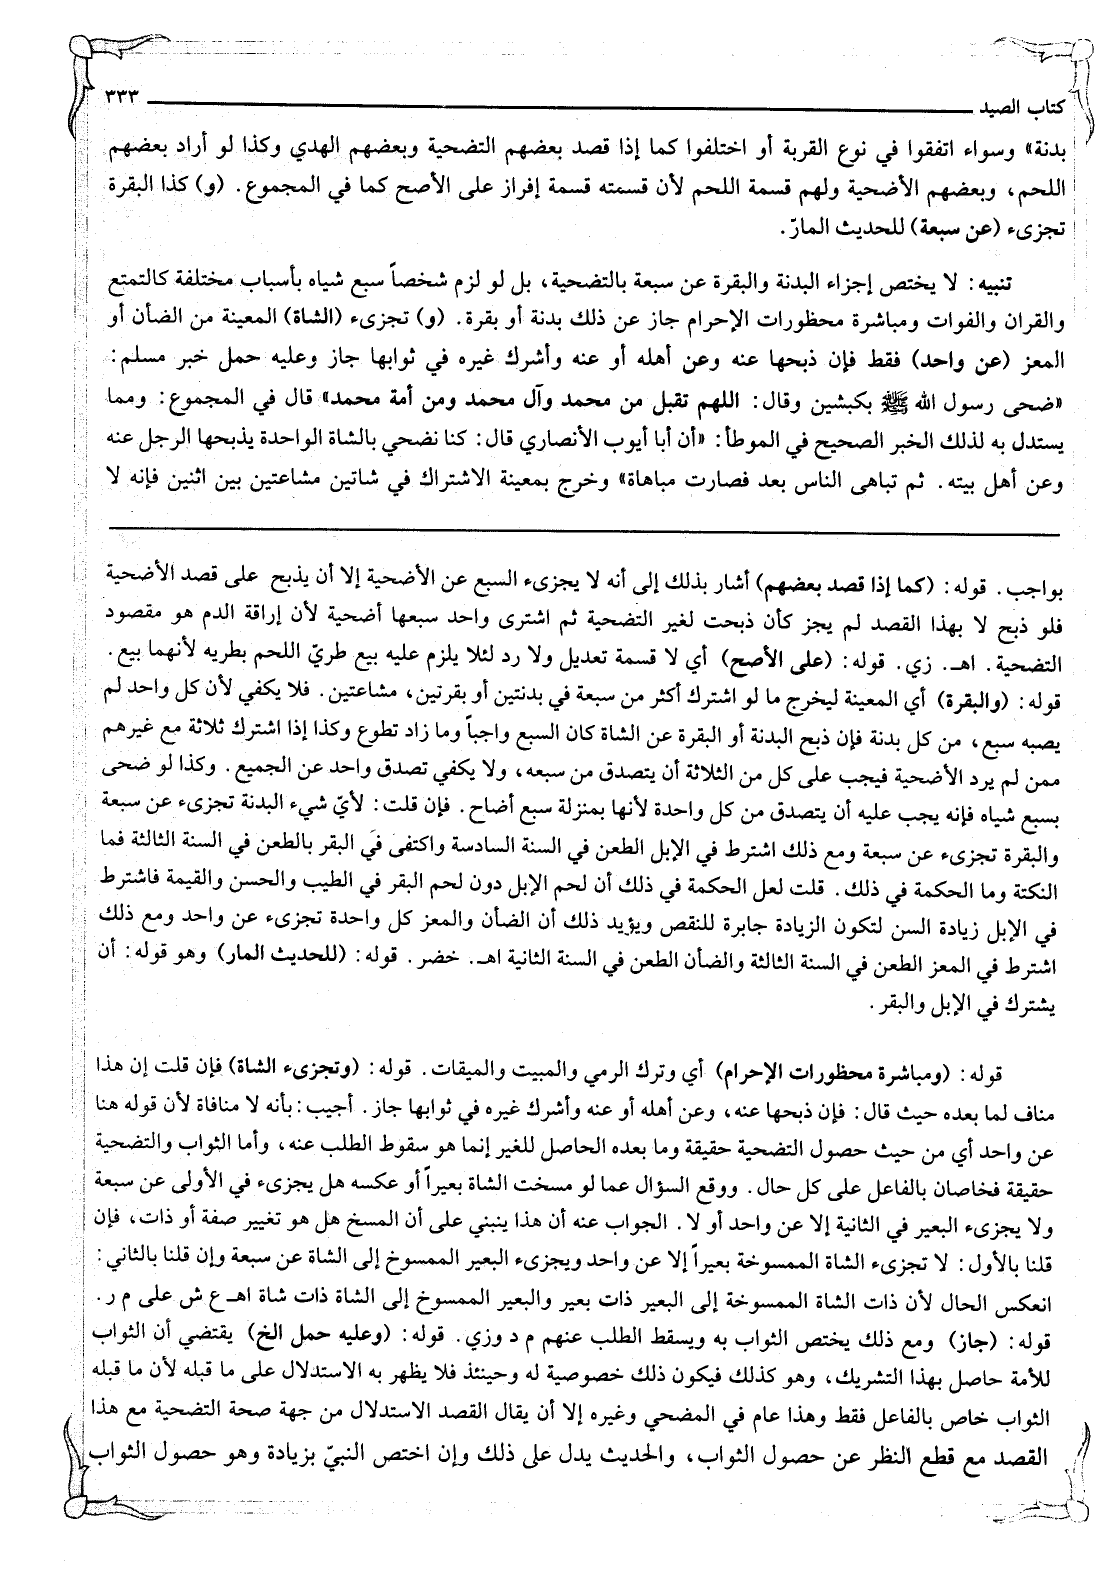 كتاب الصيد ٣٣٣
بدنة» وسواء اتفقوا في نوع القربة أو اختلفوا كما إذا قصد بعضهم التضحية وبعضهم الهدي وكذا لو أراد بعضهم
اللحم، وبعضهم الأضحية ولهم قسمة اللحم لأن قسمته قسمة إفراز على الأصح كما في المجموع. (و) كذا البقرة
تجزىء (عن سبعة) للحديث المارّ.
تنبيه: لا يختص إجزاء البدنة والبقرة عن سبعة بالتضحية، بل لو لزم شخصاً سبع شياه بأسباب مختلفة كالتمتع
والقران والفوات ومباشرة محظورات الإحرام جاز عن ذلك بدنة أو بقرة. (و) تجزىء (الشاة) المعينة من الضأن أو
المعز (عن واحد) فقط فإن ذبحها عنه وعن أهله أو عنه وأشرك غيره في ثوابها جاز وعليه حمل خبر مسلم:
«ضحى رسول الله ﷺ بكبشين وقال: اللهم تقبل من محمد وآل محمد ومن أمة محمد» قال في المجموع: ومما
يستدل به لذلك الخبر الصحيح في الموطأ: «أن أبا أيوب الأنصاري قال: كنا نضحي بالشاة الواحدة يذبحها الرجل عنه
وعن أهل بيته. ثم تباهى الناس بعد فصارت مباهاة» وخرج بمعينة الاشتراك في شاتين مشاعتين بين اثنين فإنه لا
بواجب. قوله: (كما إذا قصد بعضهم) أشار بذلك إلى أنه لا يجزىء السبع عن الأضحية إلا أن يذبح على قصد الأضحية
فلو ذبح لا بهذا القصد لم يجز كأن ذبحت لغير التضحية ثم اشترى واحد سبعها أضحية لأن إراقة الدم هو مقصود
التضحية. اهـ. زي. قوله: (على الأصح) أي لا قسمة تعديل ولا رد لئلا يلزم عليه بيع طريّ اللحم بطريه لأنهما بيع.
قوله: (والبقرة) أي المعينة ليخرج ما لو اشترك أكثر من سبعة في بدنتين أو بقرتين، مشاعتين. فلا يكفي لأن كل واحد لم
يصبه سبع، من كل بدنة فإن ذبح البدنة أو البقرة عن الشاة كان السبع واجباً وما زاد تطوع وكذا إذا اشترك ثلاثة مع غيرهم
ممن لم يرد الأضحية فيجب على كل من الثلاثة أن يتصدق من سبعه، ولا يكفي تصدق واحد عن الجميع. وكذا لو ضحى
بسبع شياه فإنه يجب عليه أن يتصدق من كل واحدة لأنها بمنزلة سبع أضاح. فإن قلت: لأيّ شيء البدنة تجزىء عن سبعة
والبقرة تجزىء عن سبعة ومع ذلك اشترط في الإبل الطعن في السنة السادسة واكتفى في البقر بالطعن في السنة الثالثة فما
النكتة وما الحكمة في ذلك. قلت لعل الحكمة في ذلك أن لحم الإبل دون لحم البقر في الطيب والحسن والقيمة فاشترط
في الإبل زيادة السن لتكون الزيادة جابرة للنقص ويؤيد ذلك أن الضأن والمعز كل واحدة تجزىء عن واحد ومع ذلك
اشترط في المعز الطعن في السنة الثالثة والضأن الطعن في السنة الثانية اهـ. خضر. قوله: (للحديث المار) وهو قوله: أن
يشترك في الإبل والبقر.
قوله: (ومباشرة محظورات الإحرام) أي وترك الرمي والمبيت والميقات. قوله: (وتجزىء الشاة) فإن قلت إن هذا
مناف لما بعده حيث قال: فإن ذبحها عنه، وعن أهله أو عنه وأشرك غيره في ثوابها جاز. أجيب: بأنه لا منافاة لأن قوله هنا
عن واحد أي من حيث حصول التضحية حقيقة وما بعده الحاصل للغير إنما هو سقوط الطلب عنه، وأما الثواب والتضحية
حقيقة فخاصان بالفاعل على كل حال. ووقع السؤال عما لو مسخت الشاة بعيراً أو عكسه هل يجزىء في الأولى عن سبعة
ولا يجزىء البعير في الثانية إلا عن واحد أو لا. الجواب عنه أن هذا ينبني على أن المسخ هل هو تغيير صفة أو ذات، فإن
قلنا بالأول: لا تجزىء الشاة الممسوخة بعيراً إلا عن واحد ويجزىء البعير الممسوخ إلى الشاة عن سبعة وإن قلنا بالثاني:
انعكس الحال لأن ذات الشاة الممسوخة إلى البعير ذات بعير والبعير الممسوخ إلى الشاة ذات شاة اهـ ع ش على م ر.
قوله: (جاز) ومع ذلك يختص الثواب به ويسقط الطلب عنهم م د وزي. قوله: (وعليه حمل الخ) يقتضي أن الثواب
للأمة حاصل بهذا التشريك، وهو كذلك فيكون ذلك خصوصية له وحينئذ فلا يظهر به الاستدلال على ما قبله لأن ما قبله
الثواب خاص بالفاعل فقط وهذا عام في المضحي وغيره إلا أن يقال القصد الاستدلال من جهة صحة التضحية مع هذا
القصد مع قطع النظر عن حصول الثواب، والحديث يدل على ذلك وإن اختص النبيّ بزيادة وهو حصول الثواب